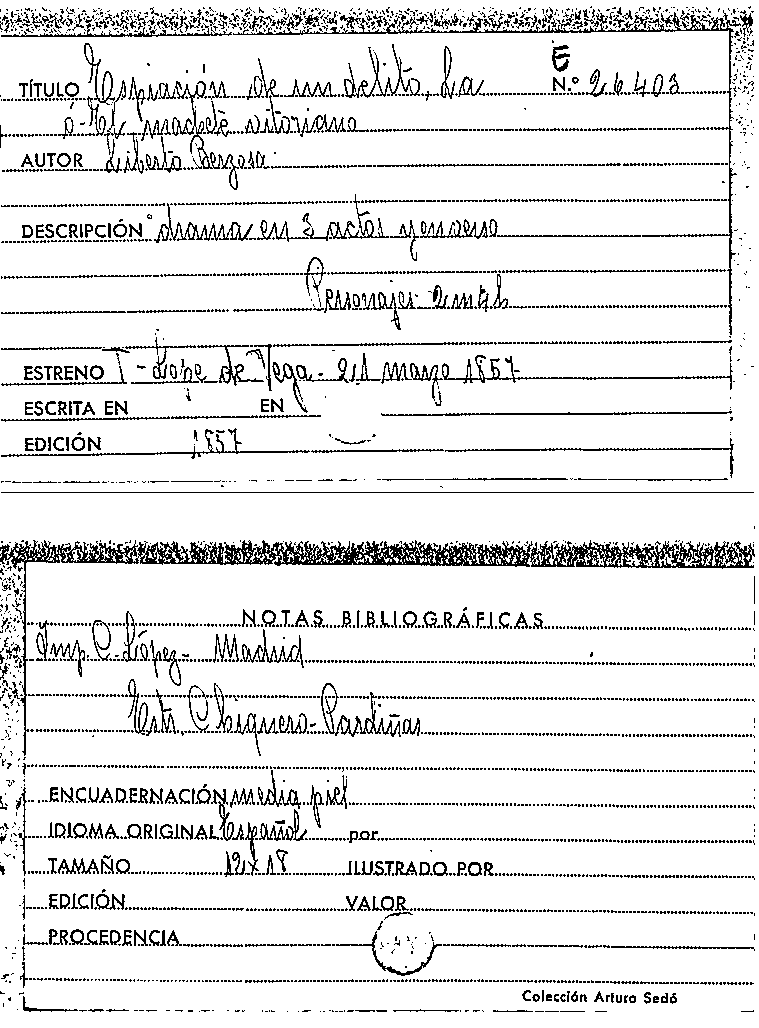 E
TÍTULO Espiación de un delito, La N.º 26.403
ó- El machete vitoriano
AUTOR Liberto Berzosa
DESCRIPCIÓN drama en 3 actos y en verso
Personajes 2 m 4 h
ESTRENO T - Lope de Vega - 21 marzo 1857
ESCRITA EN EN
EDICIÓN 1857
NOTAS BIBLIOGRÁFICAS
Imp. C. López- Madrid
Estr. Chiquero-Pardiñas
ENCUADERNACIÓN media piel
IDIOMA ORIGINAL Español por
TAMAÑO 12 x 18 ILUSTRADO POR
EDICIÓN VALOR
PROCEDENCIA
Colección Arturo Sedó